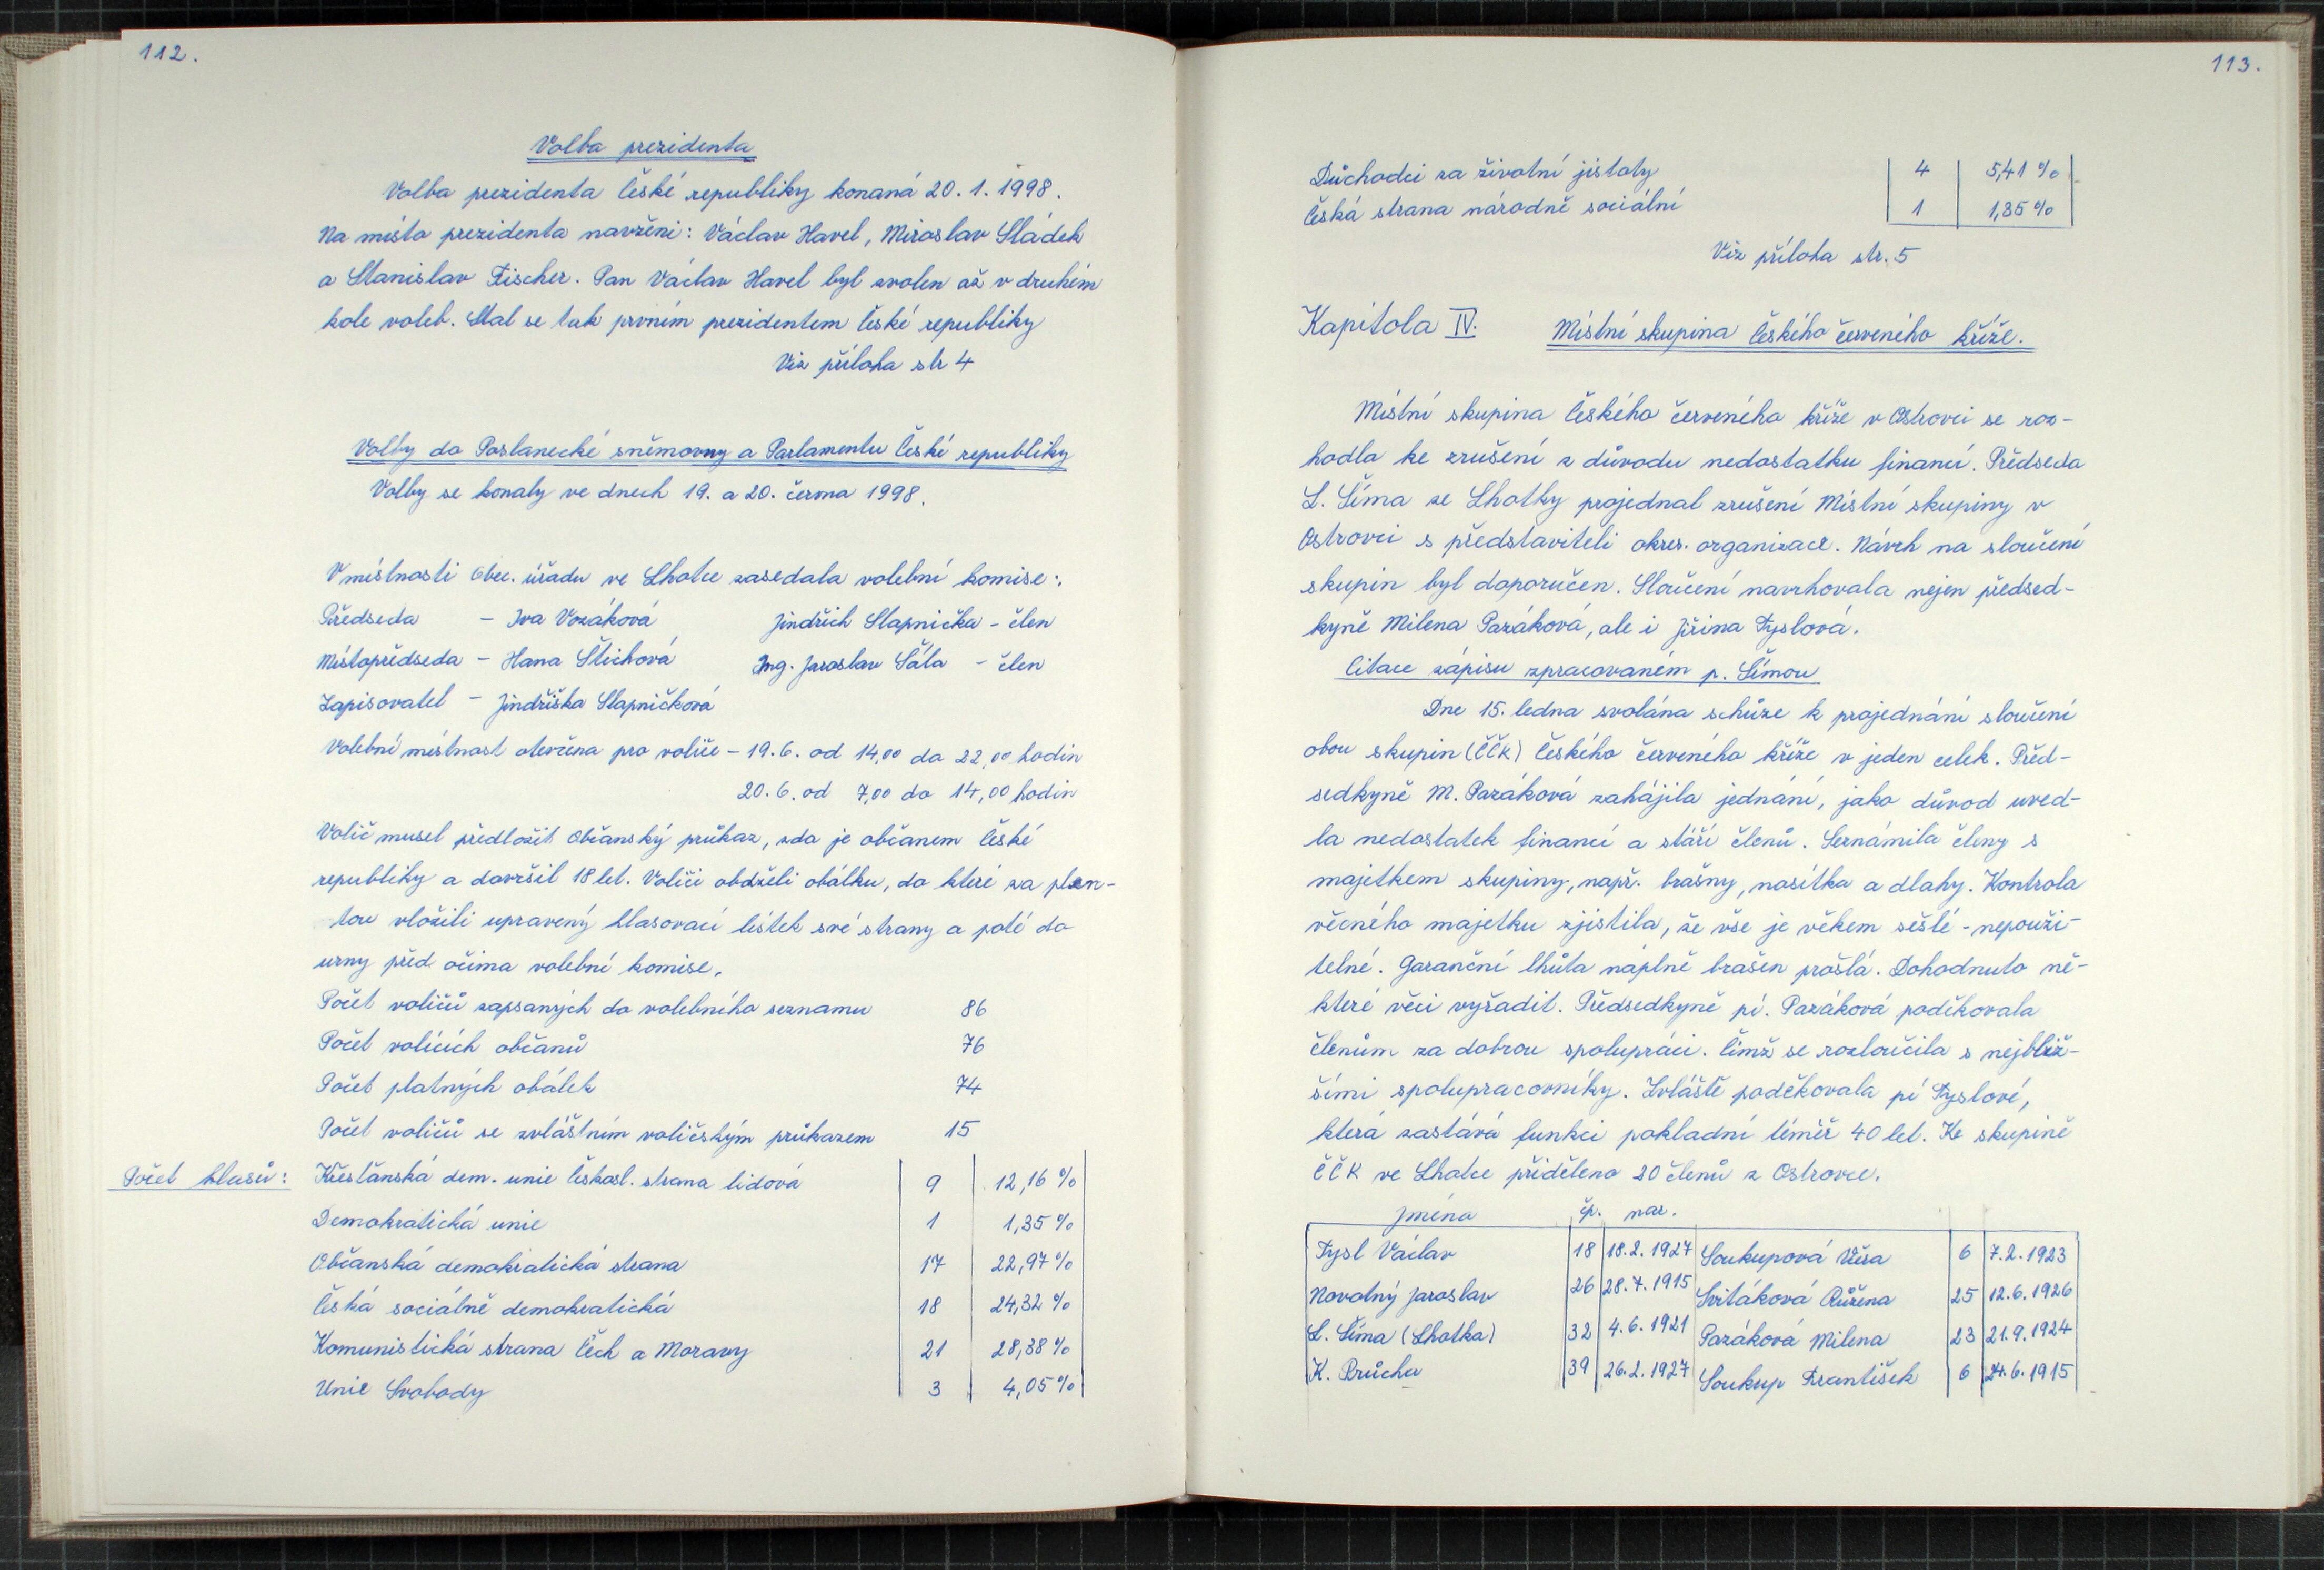 112.
Volba prezidenta
Volba prezidenta České republiky konaná 20. 1. 1998.
Na místo prezidenta navrženi: Václav Havel, Miroslav Sládek
a Stanislav Fischer. Pan Václav Havel byl zvolen až v druhém
kole voleb. Stal se tak prvním prezidentem České republiky
Viz příloha str 4
Volby do Poslanecké sněmovny a Parlamentu České republiky
Volby se konaly ve dnech 19. a 20. června 1998.
V místnosti Obec. úřadu ve Lhotce zasedala volební komise:
Předseda - Iva Vozáková Jindřich Slapnička - člen
Místopředseda - Hana Štichová Ing. Jaroslav Šála - člen
Zapisovatel - Jindřiška Slapničková
Volební místnost otevřena pro voliče - 19. 6. od 14,00 do 22,00 hodin
20. 6. od 7,00 do 14,00 hodin
Volič musel předložit Občanský průkaz, zda je občanem České
republiky a dovršil 18 let. Voliči obdželi obálku, do které za plen-
tou vložili upravený hlasovací lístek své strany a poté do
urny před očima volební komise.
Počet voličů zapsaných do volebního seznamu 86
Počet volících občanů 76
Počet platných obálek 74
Počet voličů se zvláštním voličským průkazem 15
Počet hlasů: Křesťanská dem. unie Českosl. strana lidová 9 12,16 %
Demokratická unie 1 1,35 %
Občanská demokratická strana 17 22,97 %
Česká sociálně demokratická 18 24,32 %
Komunistická strana Čech a Moravy 21 28,38 %
Unie Svobody 3 4,05 %
113.
Důchodci za životní jistoty 4 5,41 %
Česká strana národně sociální 1 1,35 %
Viz příloha str. 5
Kapitola IV. Místní skupina Českého červeného kříže.
Místní skupina Českého červeného kříže v Ostrovci se roz-
hodla ke zrušení z důvodu nedostatku financí. Předseda
L. Šíma ze Lhotky projednal zrušení Místní skupiny v
Ostrovci s představiteli okres. organizace. Návrh na sloučení
skupin byl doporučen. Sloučení navrhovala nejen předsed-
kyně Milena Pazáková, ale i Jiřina Fyslová.
Citace zápisu zpracovaném p. Šímou
Dne 15. ledna svolána schůze k projednání sloučení
obou skupin (ČČK) Českého červeného kříže v jeden celek. Před-
sedkyně M. Pazáková zahájila jednání, jako důvod uved-
la nedostatek financí a stáří členů. Seznámila členy s
majetkem skupiny, např. brašny, nosítka a dlahy. Kontrola
věcného majetku zjistila, že vše je věkem sešlé - nepouži-
telné. Garanční lhůta náplně brašen prošlá. Dohodnuto ně-
které věci vyřadit. Předsedkyně pí. Pazáková poděkovala
členům za dobrou spolupráci. Čímž se rozloučila s nejbliž-
šími spolupracovníky. Zvláště poděkovala pí Fyslové,
která zastává funkci pokladní téměř 40 let. Ke skupině
ČČK ve Lhotce přiděleno 20 členů z Ostrovce.
Jména čp. nar.
Fysl Václav 18 18. 2. 1927 Soukupová Věra 6 7. 2. 1923
Novotný Jaroslav 26 28. 7. 1915 Svitáková Růžena 25 12. 6. 1926
L. Šíma (Lhotka) 32 4. 6. 1921 Pazáková Milena 23 21. 9. 1924
K. Průcha 39 26. 2. 1927 Soukup František 6 24. 6. 1915